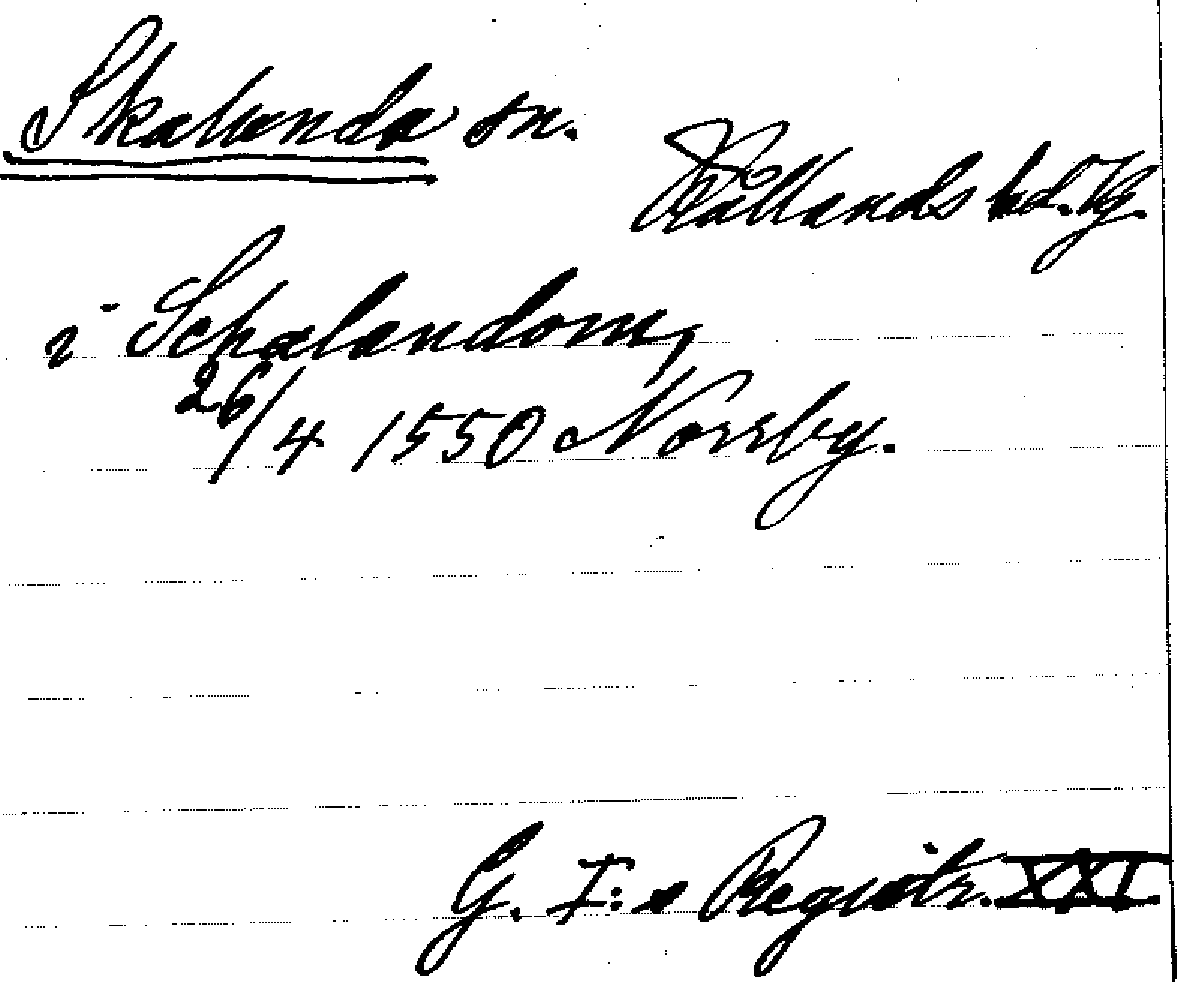 Skalunda sn.
Kållands hd. Vg.
i Schalandom,
26/4 1550 Norrby.
G. I:s Registr. XXI